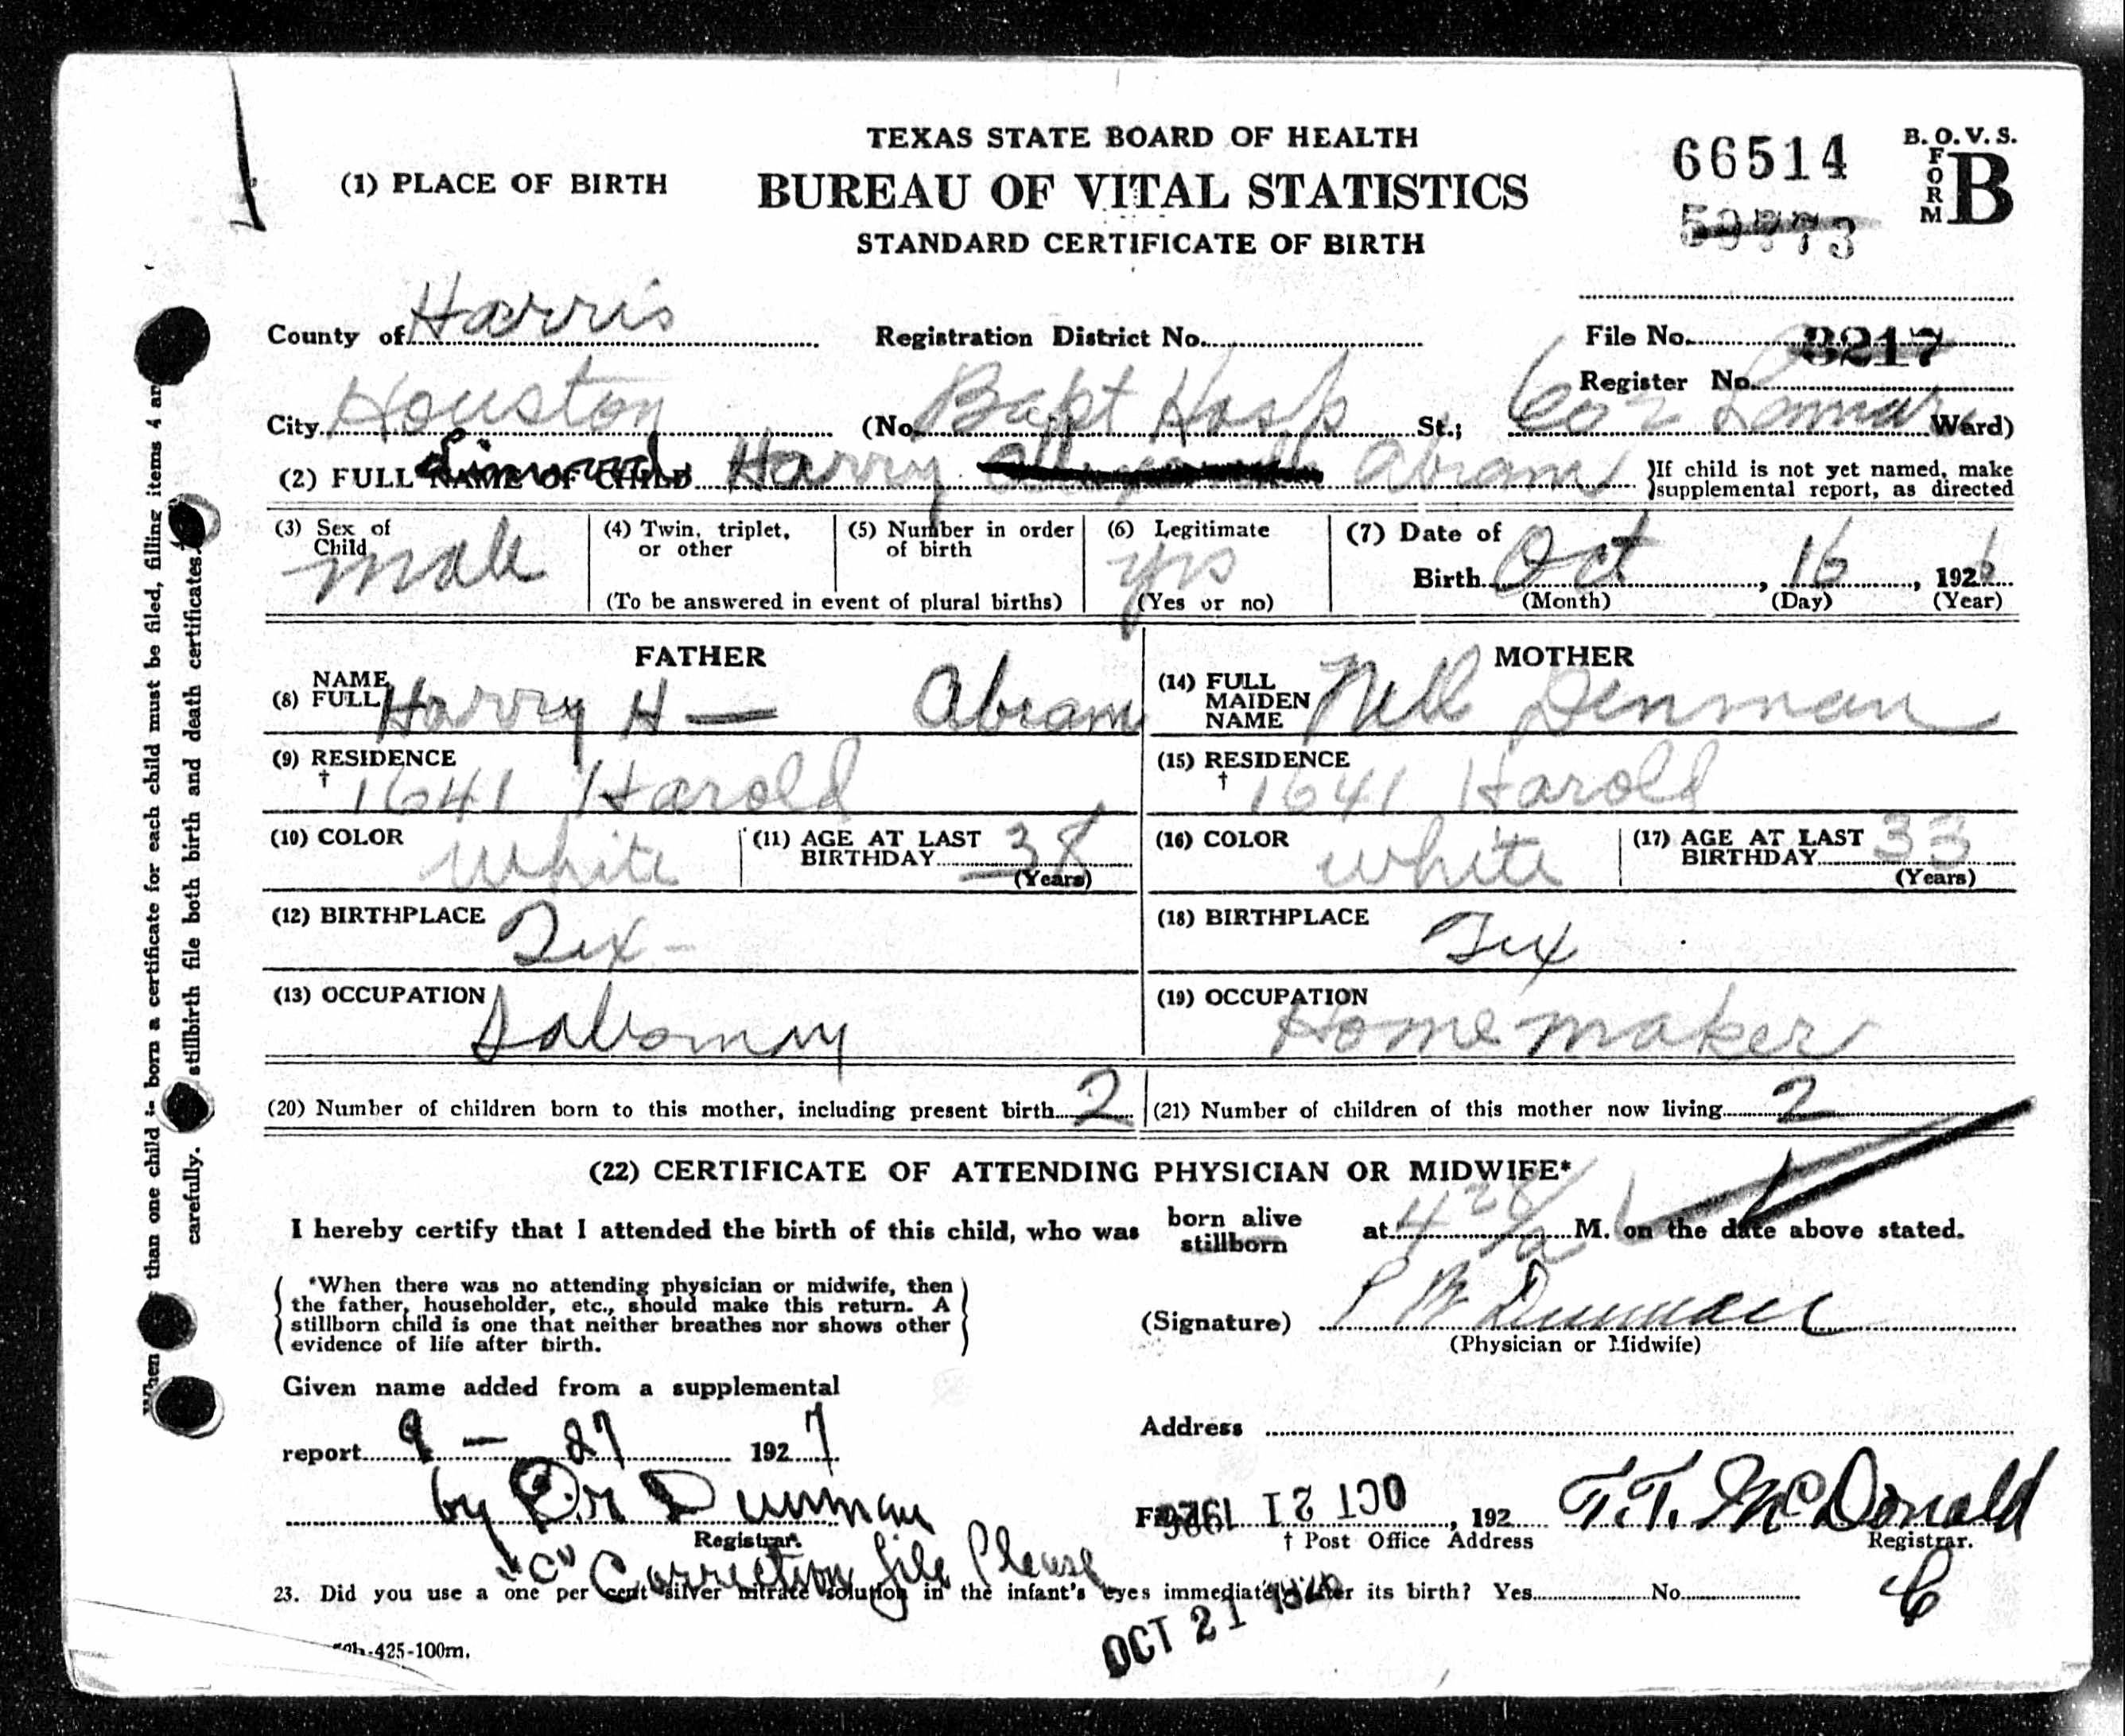 TEXAS STATE BOARD OF HEALTH
(1) PLACE OF BIRTH
BUREAU OF VITAL STATISTICS
STANDARD CERTIFICATE OF BIRTH
66514
59773
B. O. V. S.
FORM B
County of Harris
Registration District No.
File No. 3217
Register No.
City Houston (No. Bapt Hosp St.; Cor Lamar Ward)
(2) FULL NAME OF CHILD Linward Harry Abram
}If child is not yet named, make
}supplemental report, as directed
(3) Sex of Child male
(4) Twin, triplet, or other
(5) Number in order of birth
(To be answered in event of plural births)
(6) Legitimate yes
(Yes or no)
(7) Date of Birth Oct, 16, 1926
(Month) (Day) (Year)
FATHER
(8) NAME FULL Harry H — Abram
(9) RESIDENCE † 1641 Harold
(10) COLOR white
(11) AGE AT LAST BIRTHDAY 38 (Years)
(12) BIRTHPLACE Tex -
(13) OCCUPATION Salesman
MOTHER
(14) FULL MAIDEN NAME Nell Denman
(15) RESIDENCE † 1641 Harold
(16) COLOR white
(17) AGE AT LAST BIRTHDAY 33 (Years)
(18) BIRTHPLACE Tex
(19) OCCUPATION Home maker
(20) Number of children born to this mother, including present birth 2
(21) Number of children of this mother now living 2
(22) CERTIFICATE OF ATTENDING PHYSICIAN OR MIDWIFE*
I hereby certify that I attended the birth of this child, who was born alive stillborn at 4 a M. on the date above stated.
*When there was no attending physician or midwife, then
the father, householder, etc., should make this return. A
stillborn child is one that neither breathes nor shows other
evidence of life after birth.
(Signature) P W Denman
(Physician or Midwife)
Given name added from a supplemental
report 9 - 27 1927
by Dr Denman
Registrar.
Address
OCT 21 1926, 192
T. T. McDonald
† Post Office Address
Registrar.
"C" Correction file Please
23. Did you use a one per cent silver nitrate solution in the infant's eyes immediately after its birth? Yes No
C
OCT 21
-425-100m.
than one child is born a certificate for each child must be filed, filling items 4 and
carefully. stillbirth file both birth and death certificates.